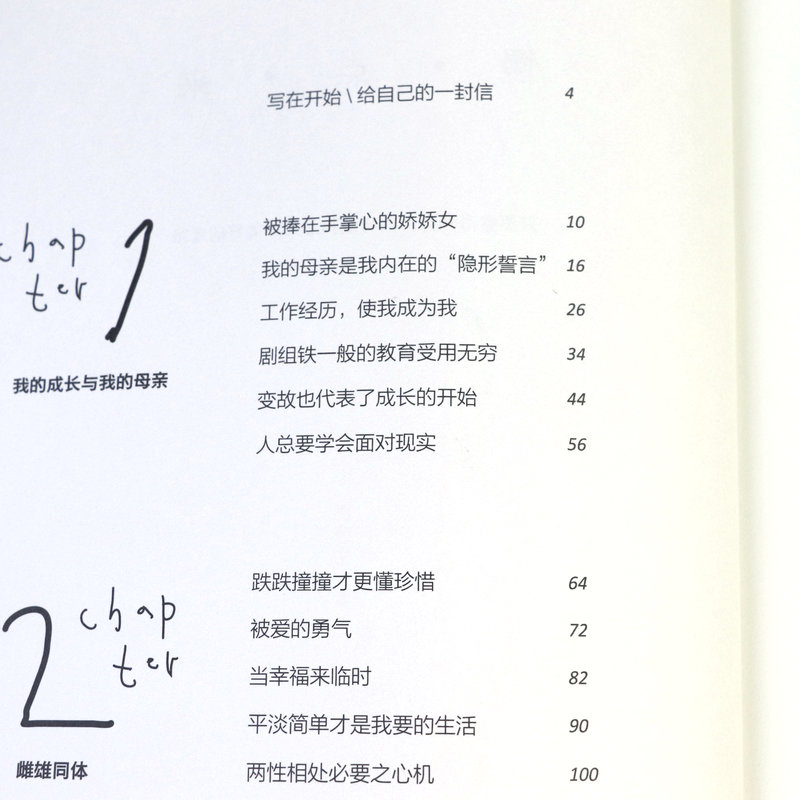 写在开始 \ 给自己的一封信 4
chap
ter 1
我的成长与我的母亲
被捧在手掌心的娇娇女 10
我的母亲是我内在的“隐形誓言” 16
工作经历，使我成为我 26
剧组铁一般的教育受用无穷 34
变故也代表了成长的开始 44
人总要学会面对现实 56
2 chap
ter
雌雄同体
跌跌撞撞才更懂珍惜 64
被爱的勇气 72
当幸福来临时 82
平淡简单才是我要的生活 90
两性相处必要之心机 100